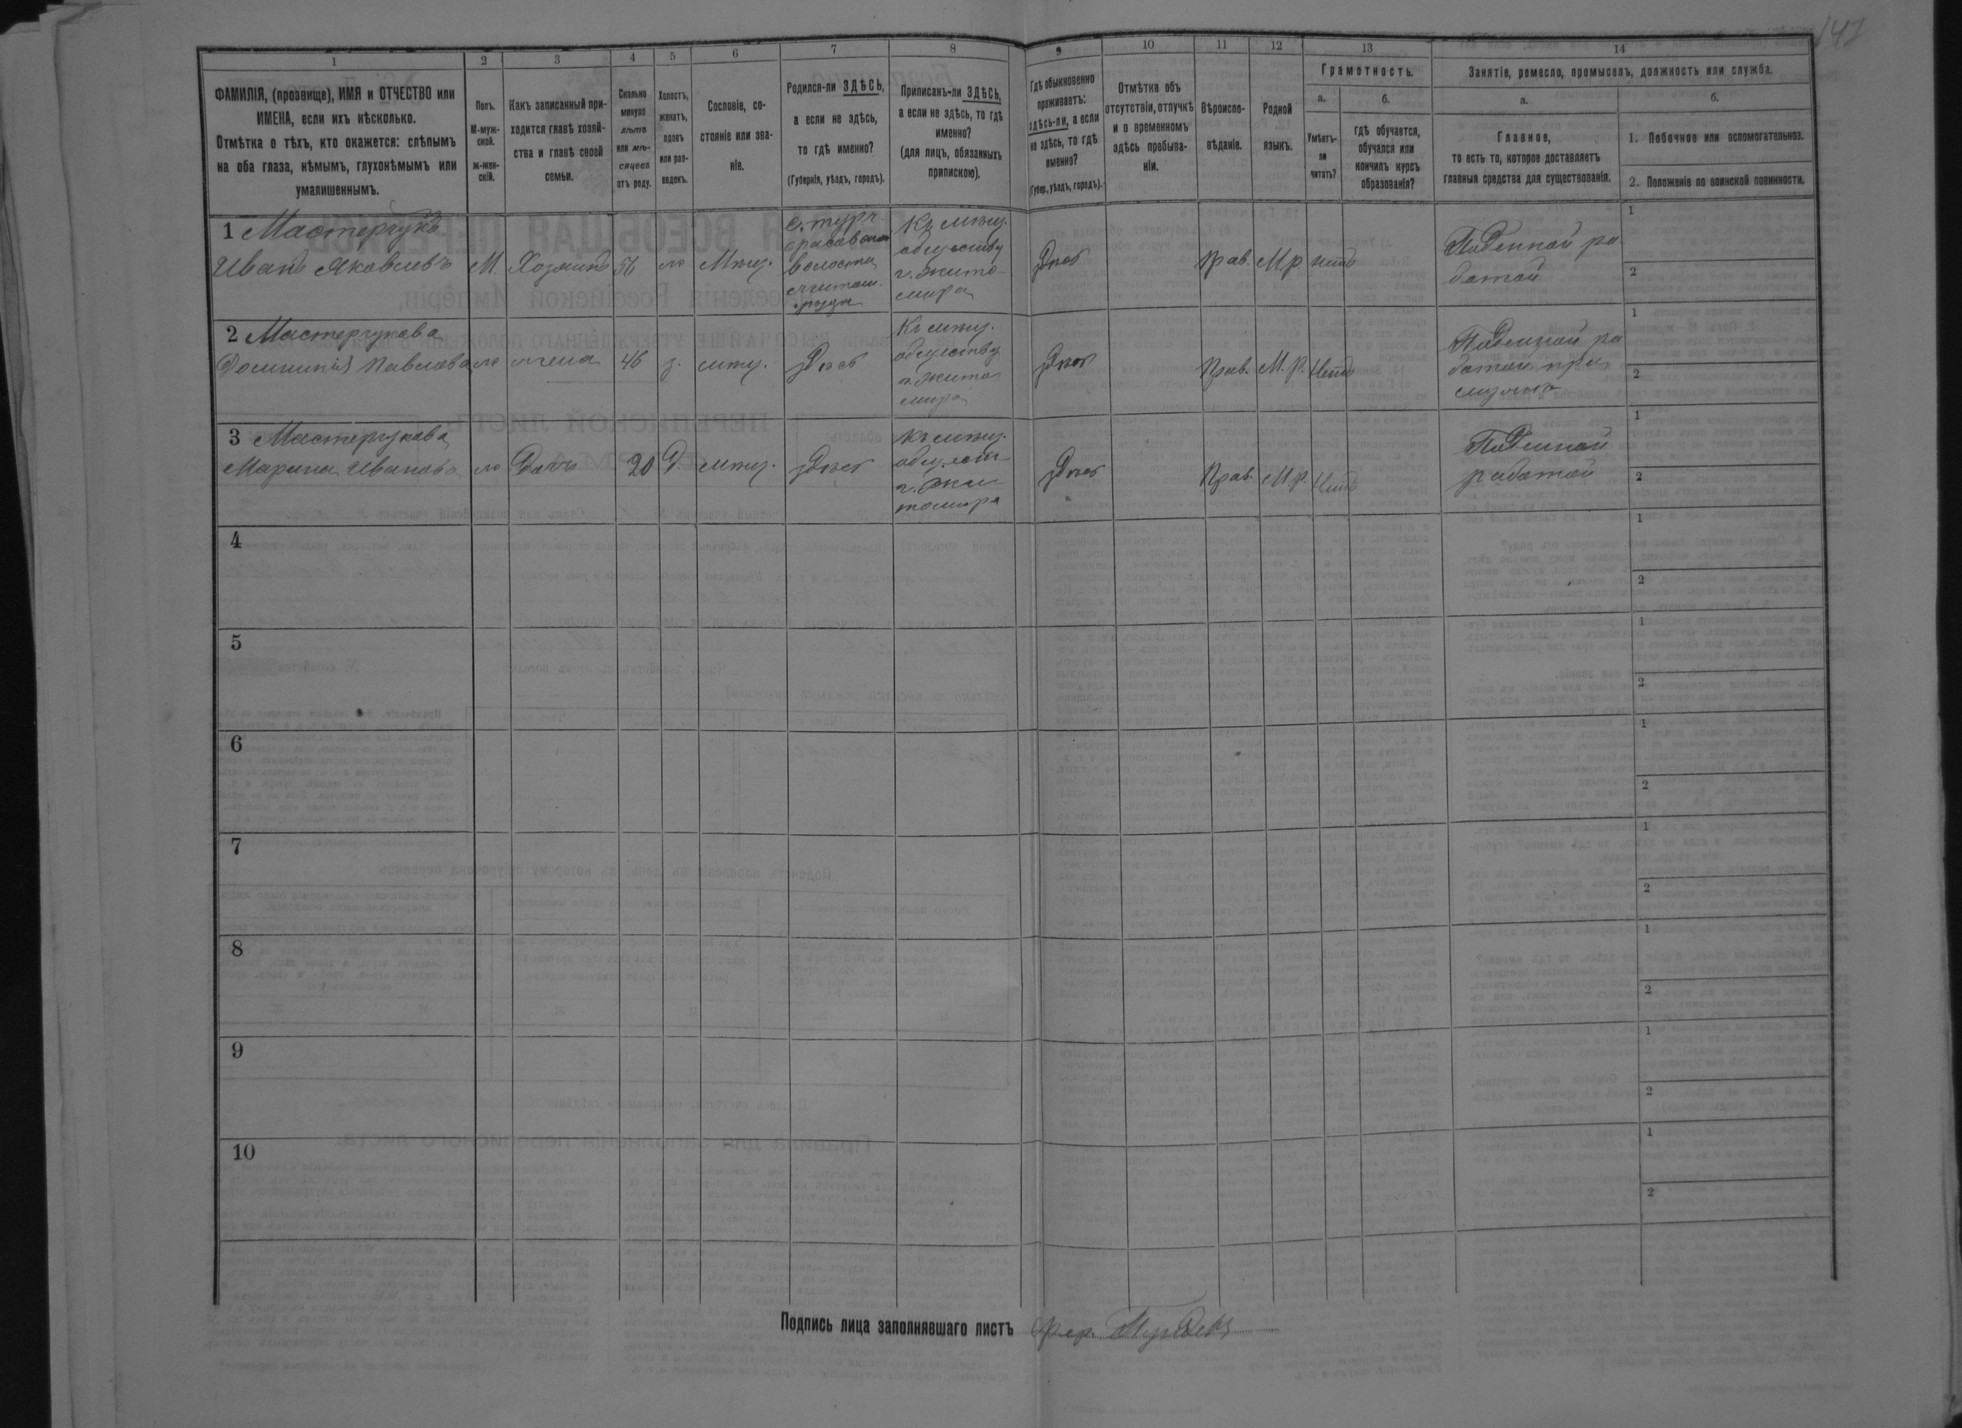 147
1 2 3 4 5 6 7 8 9 10 11 12 13 14
ФАМИЛІЯ, (прозвище), ИМЯ и ОТЧЕСТВО или
ИМЕНА, если ихъ нѣсколько.
Отмѣтка о тѣхъ, кто окажется: слѣпымъ
на оба глаза, нѣмымъ, глухонѣмымъ или
умалишеннымъ.
Полъ.
М-муж-
ской.
ж-жен-
скій.
Какъ записанный при-
ходится главѣ хозяй-
ства и главѣ своей
семьи.
Сколько
минуло
лѣтъ
или мѣ-
сяцевъ
отъ роду.
Холостъ,
женатъ,
вдовъ
или раз-
веденъ.
Сословіе, со-
стояніе или зва-
ніе.
Родился-ли ЗДѢСЬ,
а если не здѣсь,
то гдѣ именно?
(Губернія, уѣздъ, городъ).
Приписанъ-ли ЗДѢСЬ,
а если не здѣсь, то гдѣ
именно?
(для лицъ, обязанныхъ
припискою).
Гдѣ обыкновенно
проживаетъ:
здѣсь-ли, а если
не здѣсь, то гдѣ
именно?
(Губер., уѣздъ, городъ).
Отмѣтка объ
отсутствіи, отлучкѣ
и о временномъ
здѣсь пребыва-
ніи.
Вѣроиспо-
вѣданіе.
Родной
языкъ.
Грамотность.
а.
Умѣетъ-
ли
читать?
б.
гдѣ обучается,
обучался или
кончилъ курсъ
образованія?
Занятіе, ремесло, промыселъ, должность или служба.
а.
Главное,
то есть то, которое доставляетъ
главныя средства для существованія.
б.
1. Побочное или вспомогательное.
2. Положеніе по воинской повинности.
1 Мастергукъ
Иванъ Яковлевъ
М.
Хозяинъ
56
Мѣщ.
волости
Къ мѣщ.
обществу
г. Жито-
мира
здѣсь
Прав.
М.р.
нетъ
Поденной ра
ботой
1
2
2 Мастергукова
Павлова
жена
46
з.
мѣщ.
здѣсь
Къ мѣщ.
обществу
г. Жито
мира
здѣсь
Прав.
М.р.
Нетъ
Поденной ра
ботой при
1
2
3 Мастергукова
Марина Иванова
Дочь
20
Д.
мѣщ.
здѣсь
Къ мѣщ.
общест
г. Жи
томира
здѣсь
Прав.
М.р.
Нетъ
Поденной
работой
1
2
4
1
2
5
1
2
6
1
2
7
1
2
8
1
2
9
1
2
10
1
2
Подпись лица заполнявшаго листъ